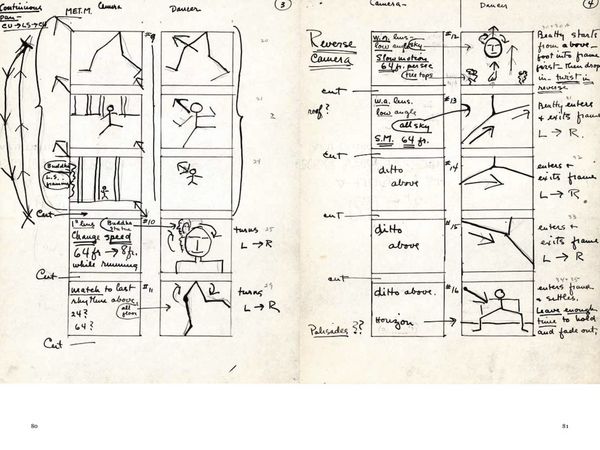 Continuous
Pan-
CU→LS→CU
MET.M.
Camera
Dancer
3
#9
20
21
2
24
Buddha
L.S.
Cut
#10
1st
Buddha
statue
Change speed
64 fr → 8 fr.
while running
turns
L → R
25
Cut
#11
match to last
rhythm above.
24?
64?
all
turns
L → R
29
Cut
80
Camera-
Dancer
4
Reverse
Camera
w.a. lens-
low angle/sky
Slow motion
64 fr. per sec
tree tops
#12
Beatty starts
from above-
foot into frame
first- then drop
in- twist in
reverse
cut
roof?
w.a. lens.
low angle
all sky
S.M. 64 fr.
#13
Beatty enters
& exits frame
L → R.
cut
ditto
above
#14
enters +
exits frame
L → R.
cut
ditto
above
#15
33
enters +
exits frame
L → R
cut
ditto above.
Horizon
#16
Palisades??
enters frame
& settles.
Leave enough
time to hold
and fade out.
81